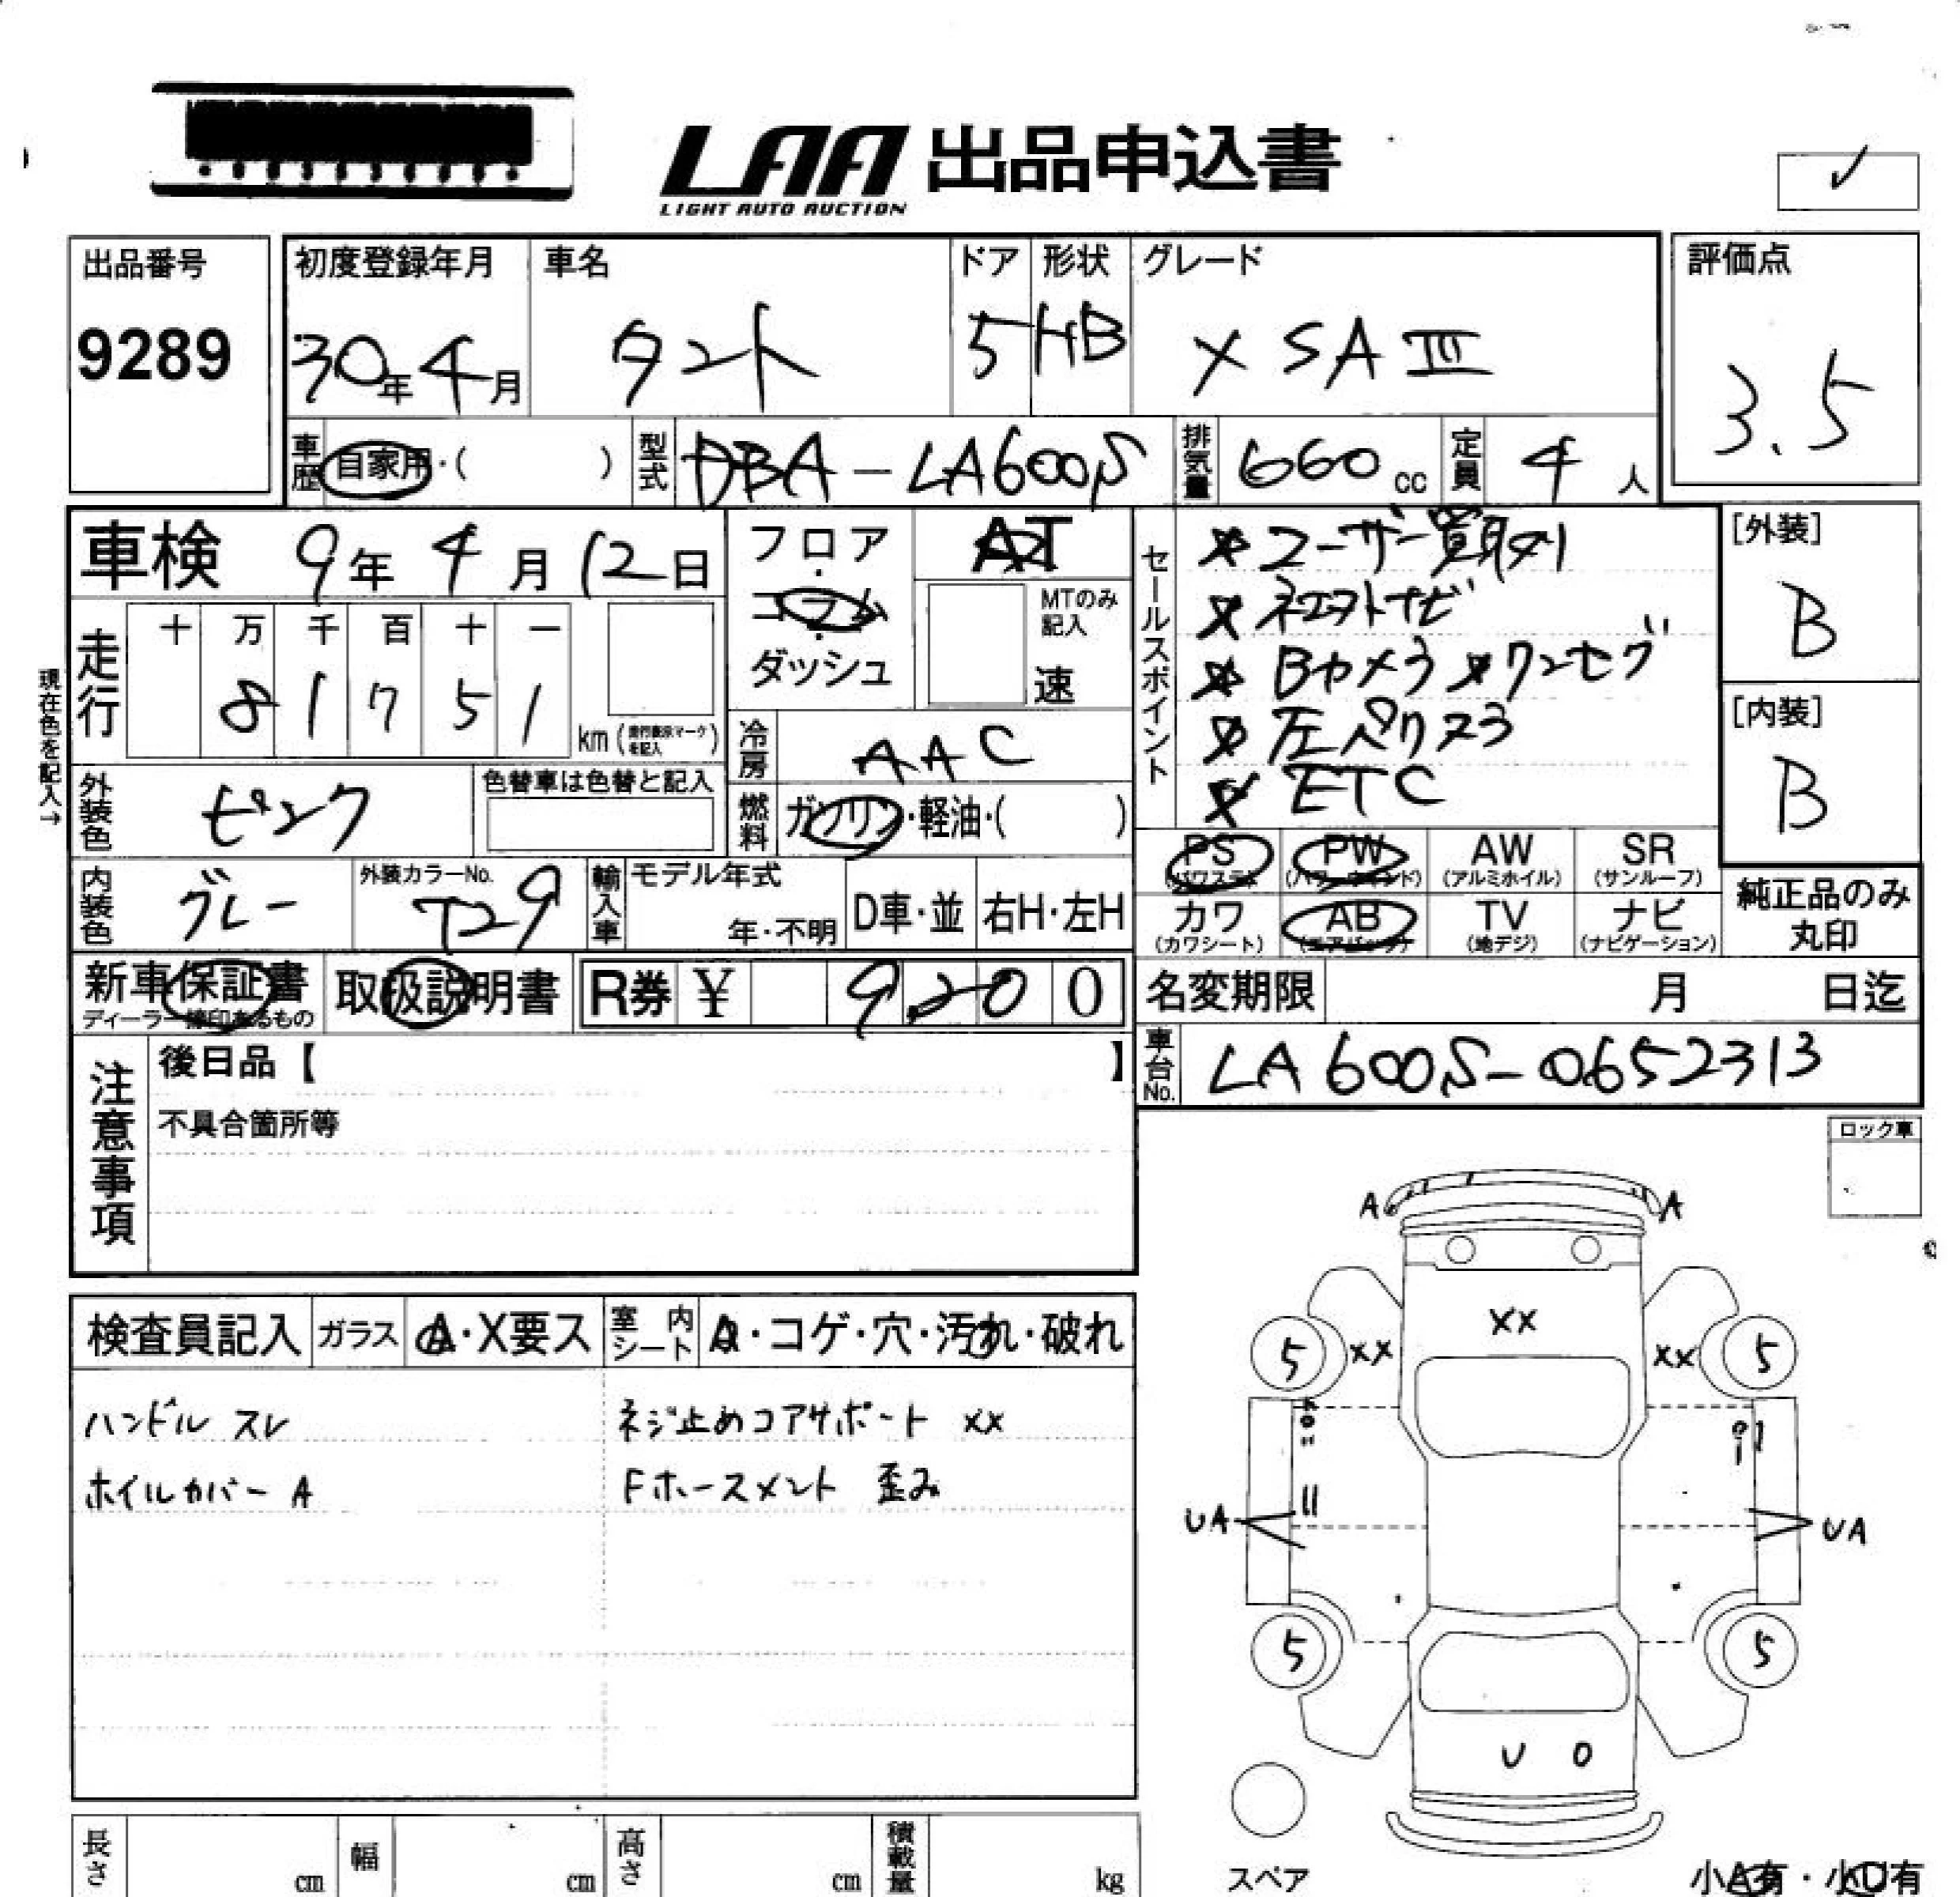 LAA 出品申込書
LIGHT AUTO AUCTION
出品番号
9289
初度登録年月 車名 ドア 形状 グレード
30年4月 タント 5 HB X SA III
評価点
3.5
車歴 自家用・( ) 型式 DBA-LA600S 排気量 660 cc 定員 4 人
車検 9年 4月 12日
フロア・コラム・ダッシュ
AT
MTのみ記入
速
走行 十 万 千 百 十 一
8 1 7 5 1 km (走行表示マークを記入)
現在色を記入→
外装色 ピンク 色替車は色替と記入
冷房 AAC
燃料 ガソリン・軽油・( )
内装色 グレー 外装カラーNo. T29
輸入車 モデル年式 年・不明 D車・並 右H・左H
セールスポイント
ユーザー買取
Bカメラ ワンセグ
左パクスラ
ETC
[外装]
B
[内装]
B
PS (パワステ) PW (パワーウインド) AW (アルミホイル) SR (サンルーフ)
カワ (カワシート) AB (エアバック) TV (地デジ) ナビ (ナビゲーション)
純正品のみ丸印
新車保証書 取扱説明書 R券 ¥ 9,200
名変期限 月 日迄
車台No. LA600S-0652313
注意事項
後日品【 】
不具合箇所等
ロック車
検査員記入 ガラス A・X要ス 室内シート ・コゲ・穴・汚れ・破れ
ハンドル スレ
ホイルカバー A
ネジ止めコアサポート XX
Fホースメント 歪み
A A
XX
5 XX XX 5
UA UA
5 5
U
スペア
長さ cm 幅 cm 高さ cm 積載量 kg
小A有・小U有